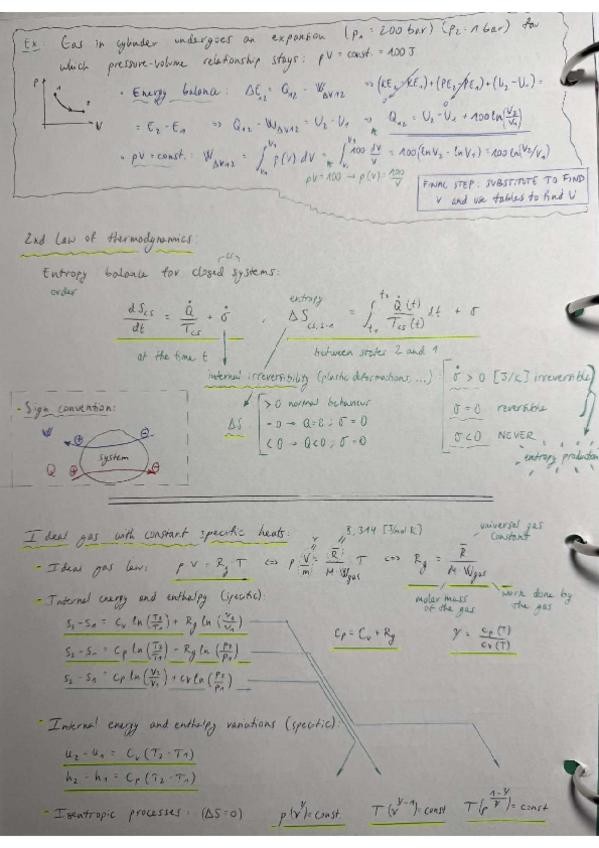 Ex: Gas in cylinder undergoes an expansion (p₁ = 200 bar) (p₂ = 1 bar) for
which pressure-volume relationship stays: pV = const. = 100 J
P
V
• Energy balance: ΔE₁₂ = Q₁₂ - W_ΔV12 ⇒ (KE₂ - KE₁) + (PE₂ - PE₁) + (U₂ - U₁) =
= E₂ - E₁ ⇒ Q₁₂ - W_ΔV12 = U₂ - U₁ ⇒ Q₁₂ = U₂ - U₁ + 100 ln(V₂/V₁)
• pV = const.: W_ΔV12 = ∫_V₁^V₂ p(V) dV = ∫_V₁^V₂ 100 dV/V = 100(ln V₂ - ln V₁) = 100 ln(V₂/V₁)
pV = 100 → p(V) = 100/V
FINAL STEP: SUBSTITUTE TO FIND
V and use tables to find U
2nd Law of thermodynamics:
(CS)
Entropy balance for closed systems:
order
dS_CS/dt = Q̇/T_CS + σ̇ , ΔS_CS,2-1 = ∫_t₁^t₂ Q̇(t)/T_CS(t) dt + σ
entropy
at the time t
between states 2 and 1
internal irreversibility (plastic deformations, ...)
σ̇ > 0 [J/K] irreversible
σ = 0 reversible
σ < 0 NEVER
entropy production
ΔS
> 0 normal behaviour
= 0 → Q = 0 ; σ = 0
< 0 → Q < 0 ; σ = 0
- Sign convention:
W ⊕ ⊖
system
Q ⊕ ⊖
Ideal gas with constant specific heats:
8,314 [J/mol K]
universal gas
constant
- Ideal gas law: p v = R_g · T ⇔ p V/m = R̄/M W_gas T ⇔ R_g = R̄/M W_gas
molar mass
of the gas
work done by
the gas
- Internal energy and enthalpy (specific):
s₂ - s₁ = c_v ln(T₂/T₁) + R_g ln(v₂/v₁)
s₂ - s₁ = c_p ln(T₂/T₁) - R_g ln(p₂/p₁)
s₂ - s₁ = c_p ln(v₂/v₁) + c_v ln(p₂/p₁)
c_p = c_v + R_g
γ = c_p(T)/c_v(T)
- Internal energy and enthalpy variations (specific):
u₂ - u₁ = c_v (T₂ - T₁)
h₂ - h₁ = c_p (T₂ - T₁)
- Isentropic processes: (ΔS=0) p(v^γ) = const. T(v^(γ-1)) = const T(p^((1-γ)/γ)) = const